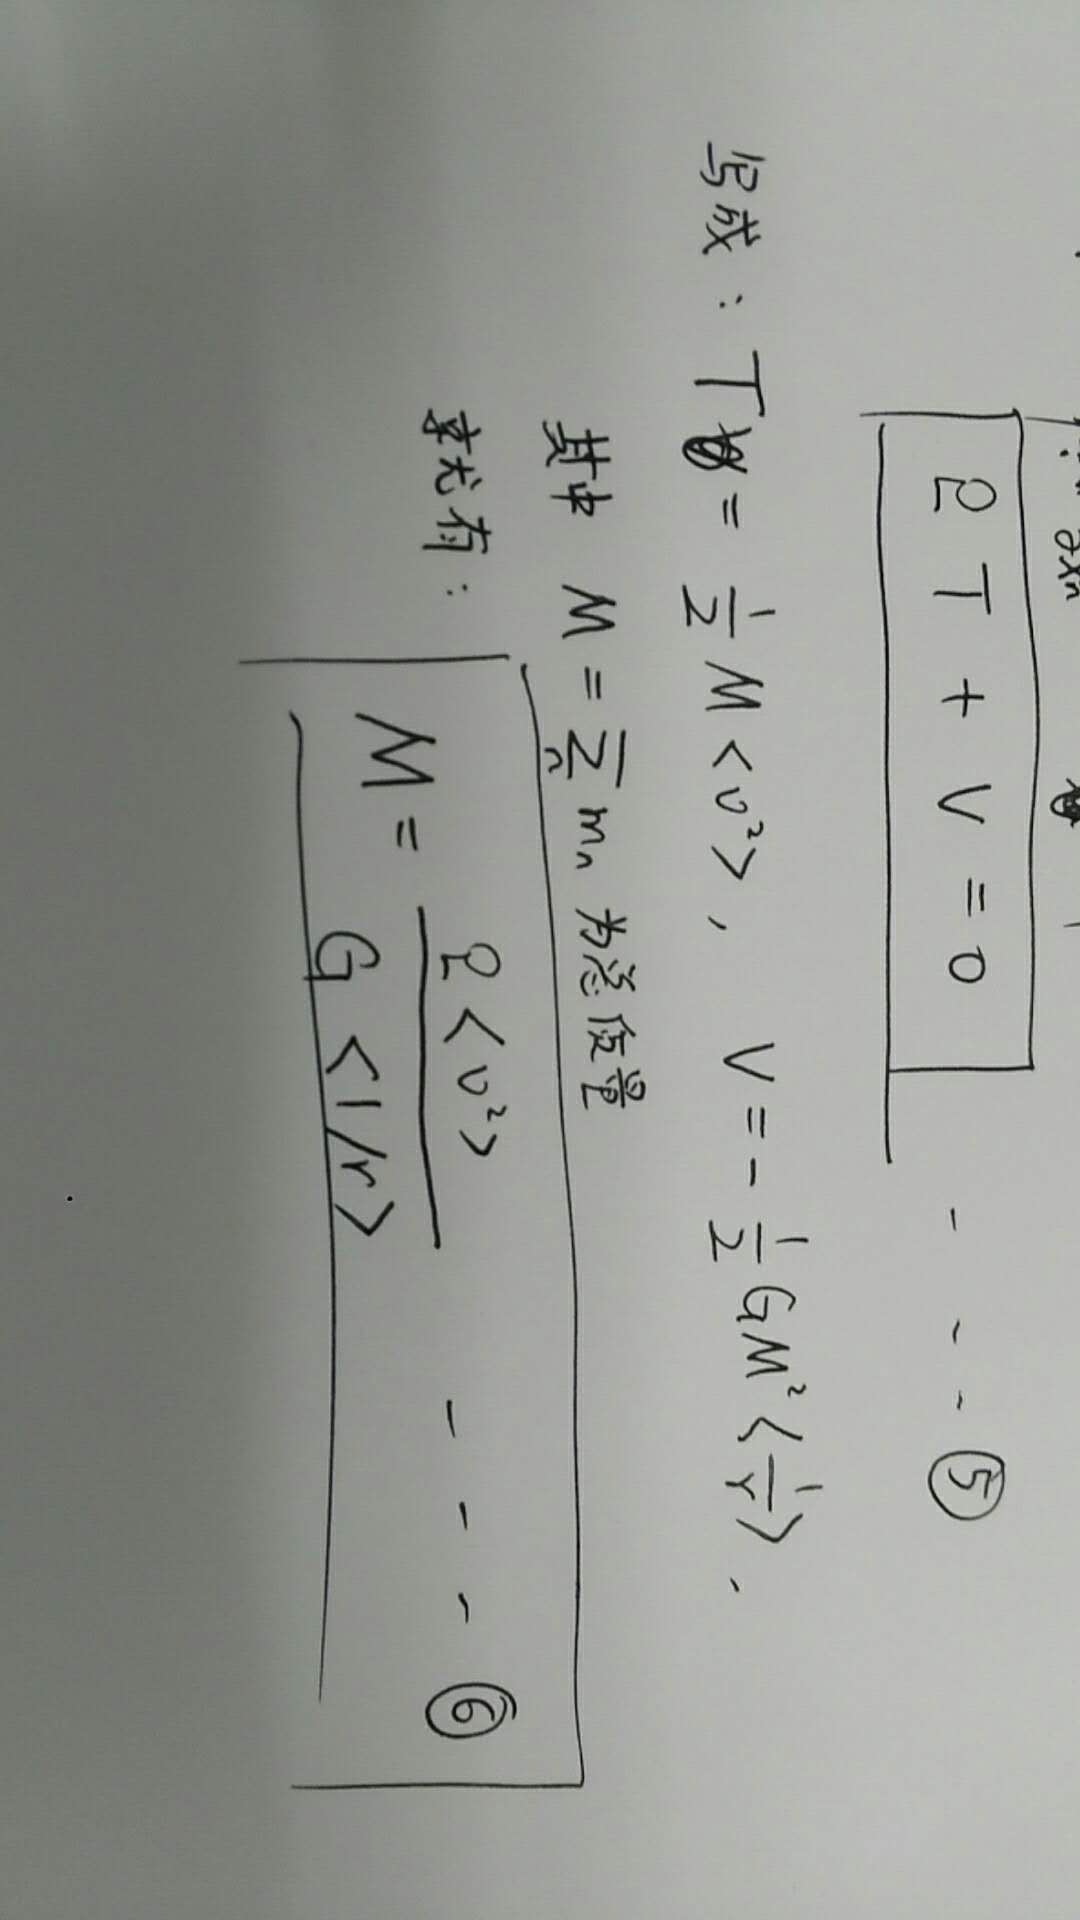 ∂xₙ
2T + V = 0 - - - ⑤
写成: T = 1/2 M <v²>, V = - 1/2 GM² <1/r>,
其中 M = Σₙ mₙ 为总质量
就有:
M = 2<v²> / G<1/r> - - - ⑥